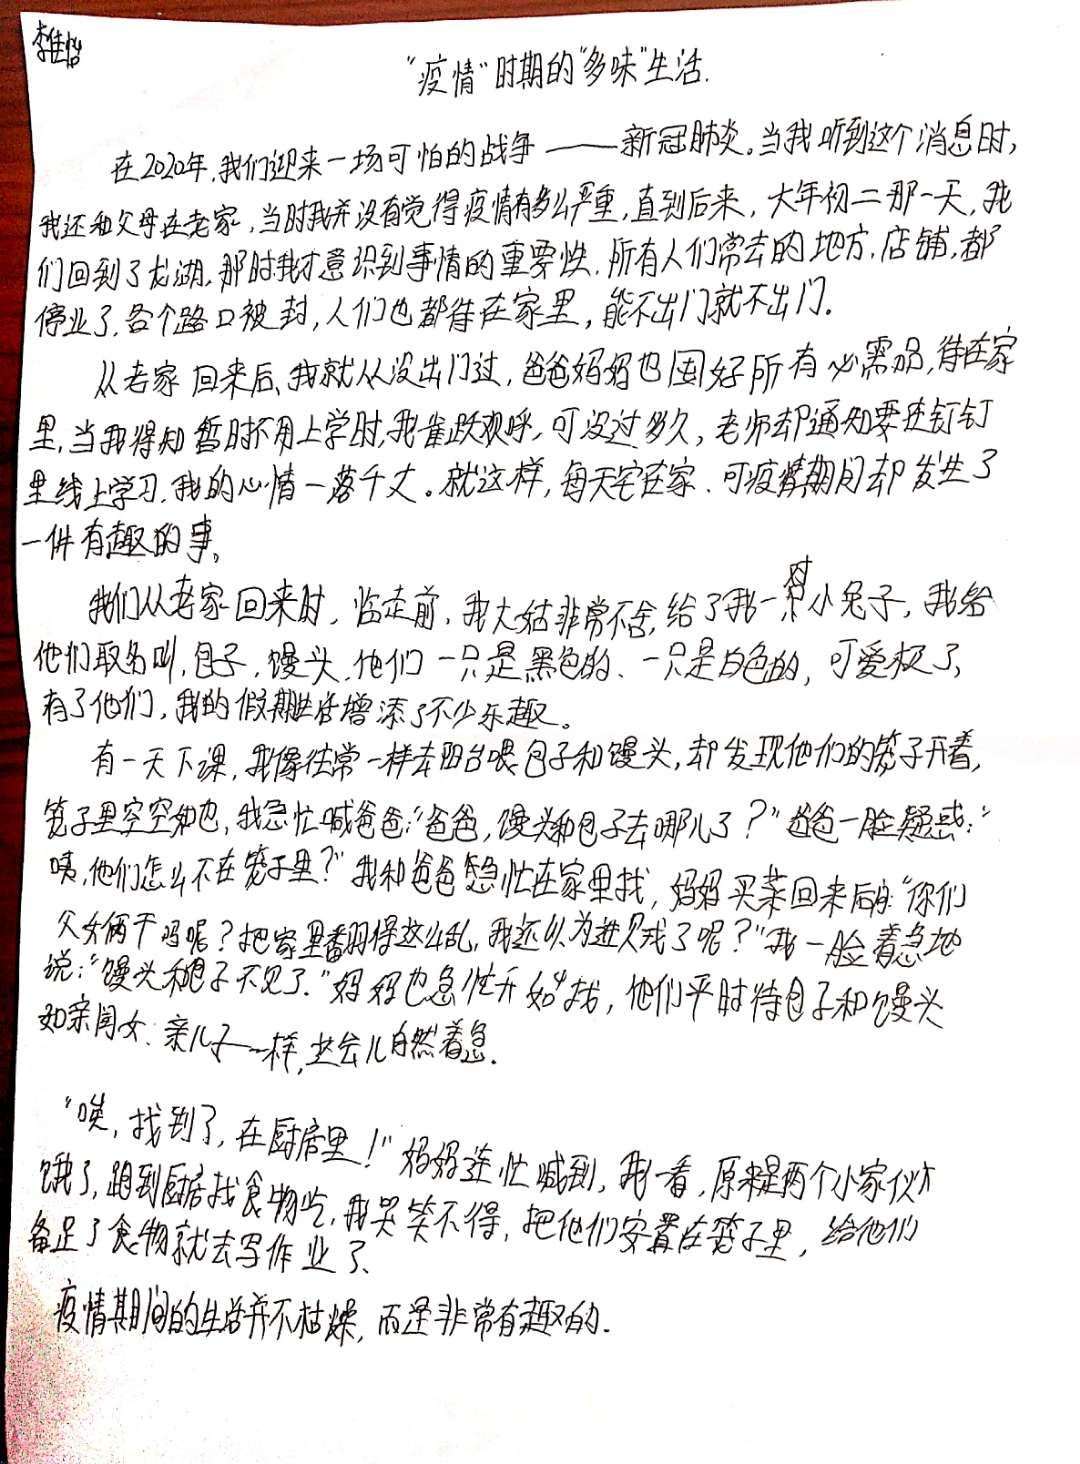 李佳怡
"疫情"时期的"多味"生活.
在2020年,我们迎来一场可怕的战争——新冠肺炎。当我听到这个消息时,
我还和父母在老家,当时我并没有觉得疫情有多么严重,直到后来,大年初二那一天,我
们回到了龙湖,那时我才意识到事情的重要性.所有人们常去的地方,店铺,都
停业了.各个路口被封,人们也都待在家里,能不出门就不出门.
从老家回来后、我就从没出门过,爸爸妈妈也囤好所有必需品,待在家
里,当我得知暂时不用上学时,我雀跃欢呼,可没过多久,老师却通知要进钉钉
里线上学习.我的心情一落千丈。就这样,每天宅在家.可疫情期间却发生了
一件有趣的事。
我们从老家回来时,临走前,我大姑非常不舍,给了我一对小兔子,我给
他们取名叫,包子,馒头.他们一只是黑色的、一只是白色的,可爱极了,
有了他们,我的假期生活增添了不少乐趣。
有一天下课,我像往常一样去阳台喂包子和馒头,却发现他们的笼子开着,
笼子里空空如也,我急忙喊爸爸:"爸爸,馒头和包子去哪儿了?"爸爸一脸疑惑:"
咦,他们怎么不在笼子里?"我和爸爸急忙在家里找,妈妈买菜回来后:"你们
父女俩干吗呢?把家里翻得这么乱,我还以为进贼了呢?"我一脸着急地
说:"馒头和包子不见了."妈妈也急忙开始找,他们平时待包子和馒头
如亲闺女.亲儿子一样,这会儿自然着急.
"唉,找到了,在厨房里!"妈妈连忙喊到,我一看,原来是两个小家伙
饿了,跑到厨房找食物吃,我哭笑不得,把他们安置在笼子里,给他们
备足了食物就去写作业了、
疫情期间的生活并不枯燥,而是非常有趣的.